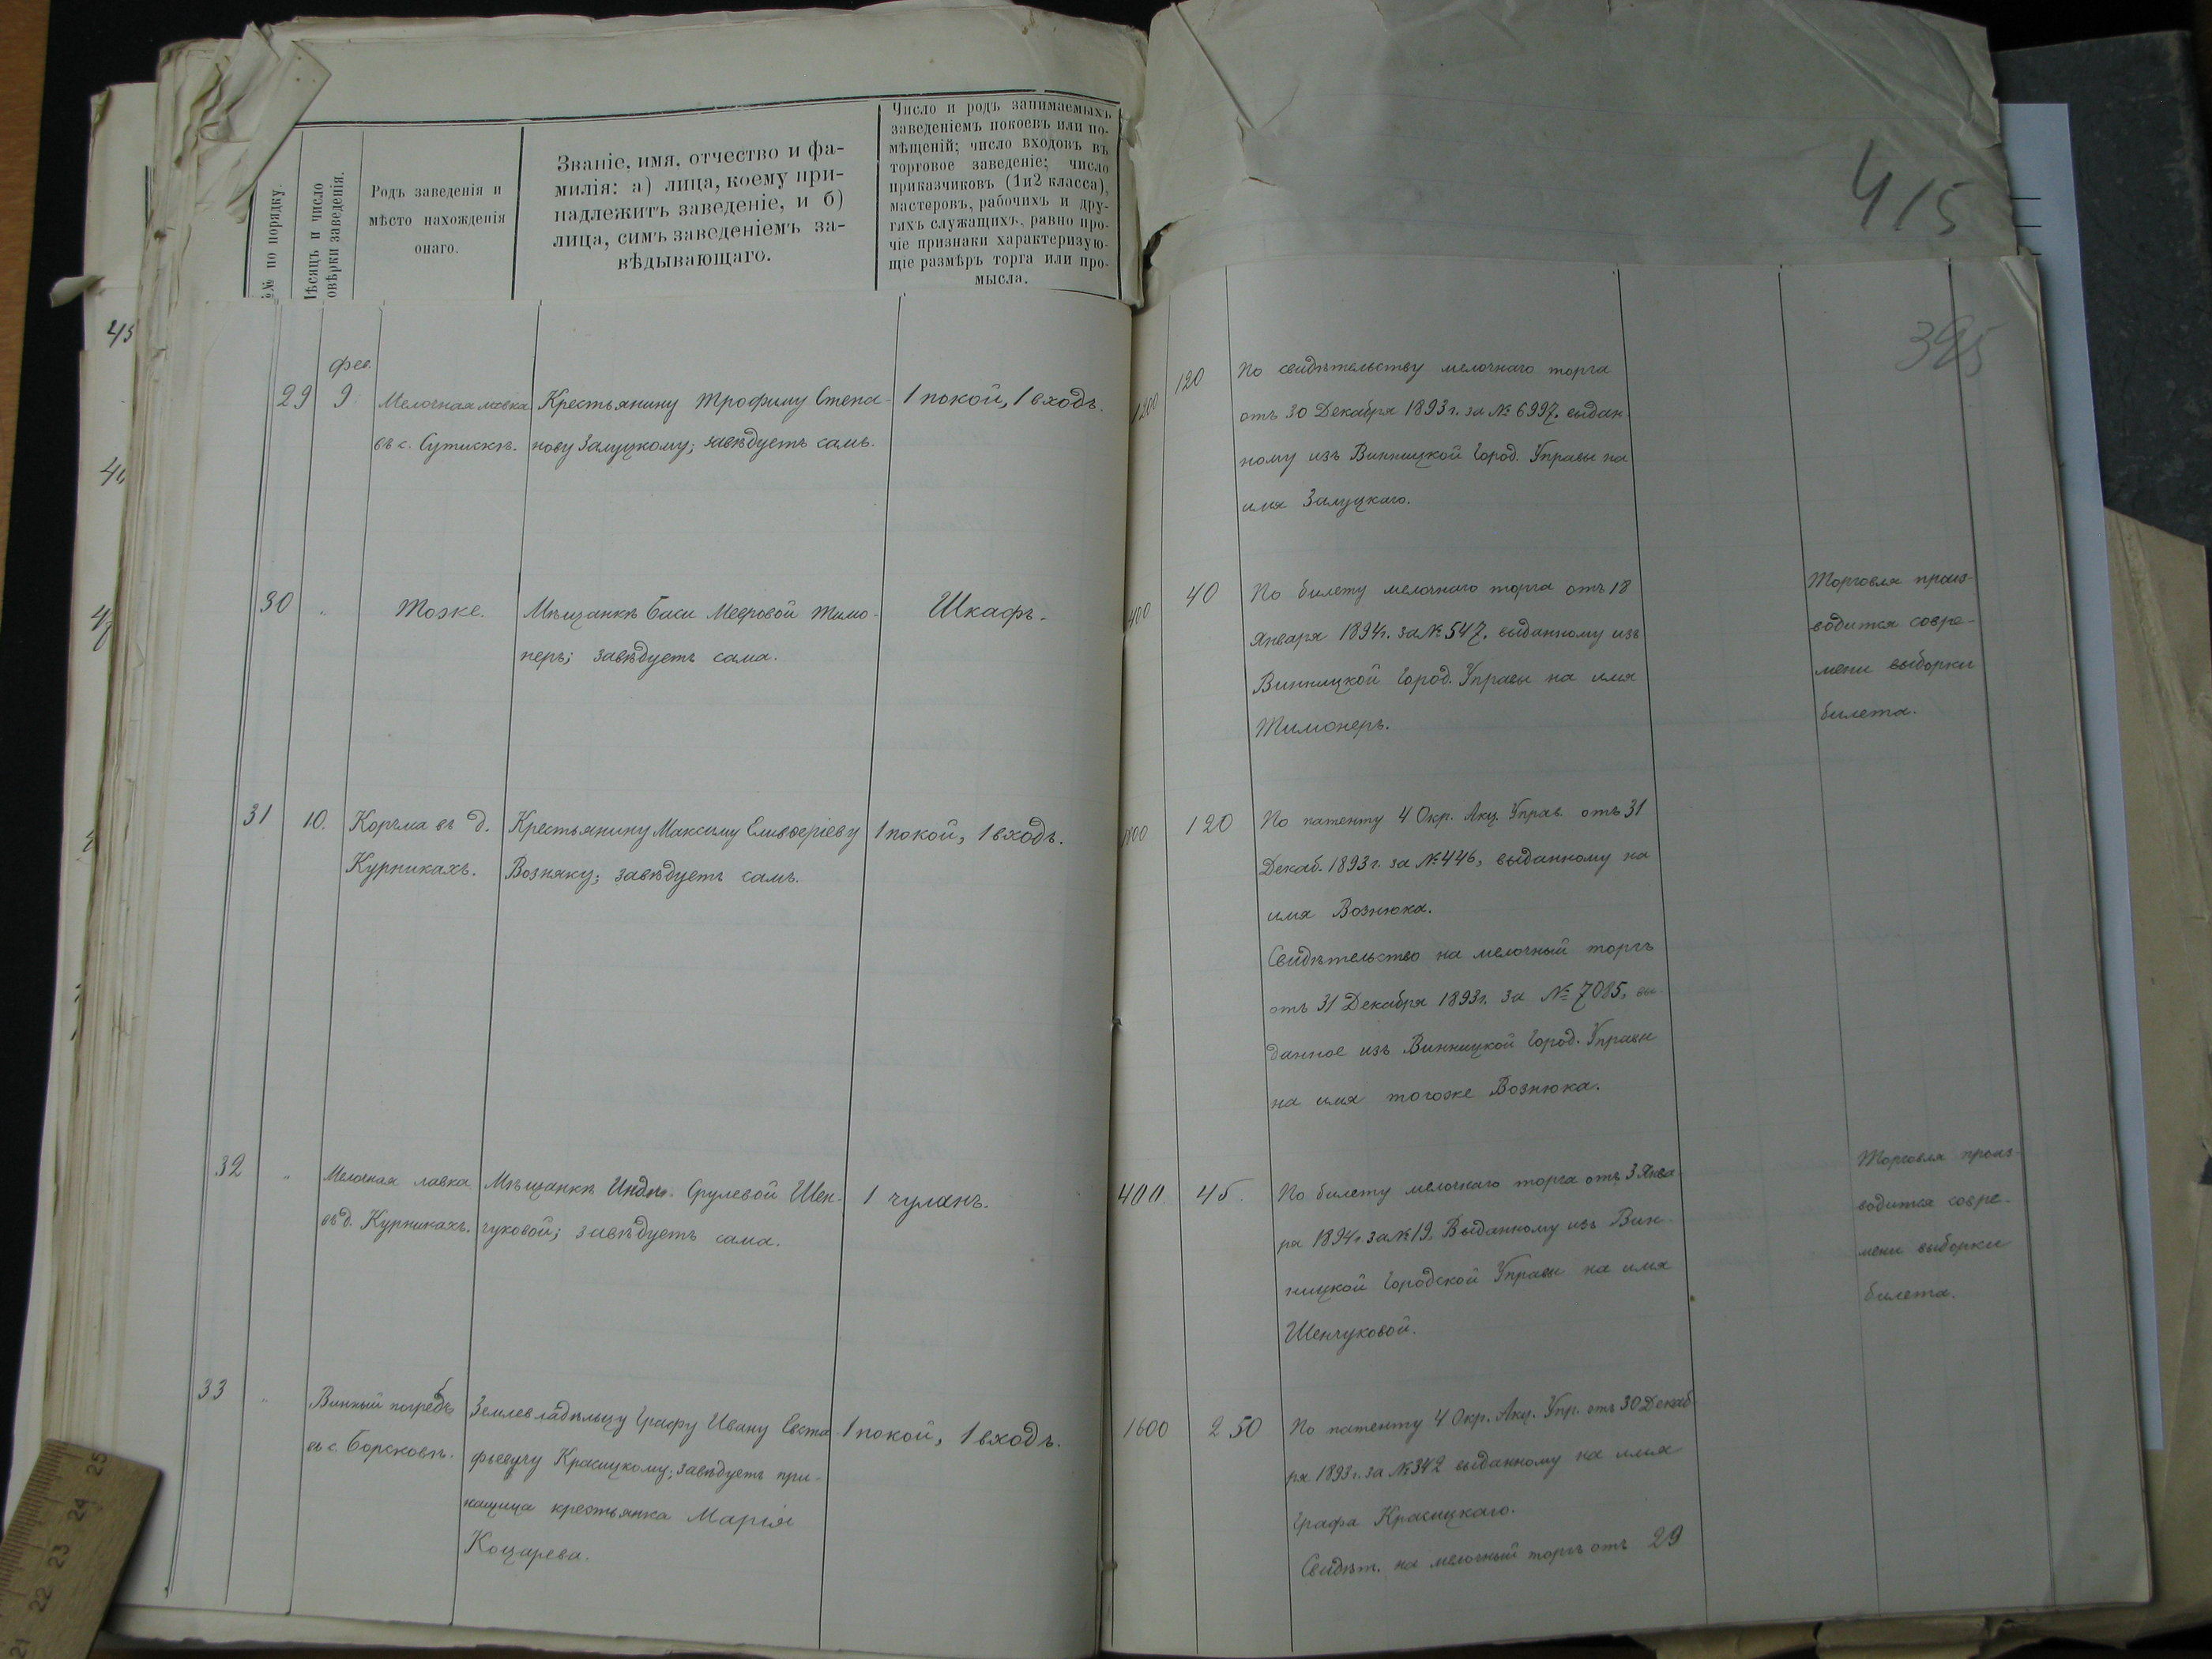 415
395
№№ по порядку.
Мѣсяцъ и число
повѣрки заведенія.
Родъ заведенія и
мѣсто нахожденія
онаго.
Званіе, имя, отчество и фа-
милія: а) лица, коему при-
надлежитъ заведеніе, и б)
лица, симъ заведеніемъ за-
вѣдывающаго.
Число и родъ занимаемыхъ
заведеніемъ покоевъ или по-
мѣщеній; число входовъ въ
торговое заведеніе; число
приказчиковъ (1 и 2 класса),
мастеровъ, рабочихъ и дру-
гихъ служащихъ, равно про-
чіе признаки характеризую-
щіе размѣръ торга или про-
мысла.
29
фев.
9
Мелочная лавка
въ с. Сутискѣ.
Крестьянину Трофиму Степа-
нову Залуцкому; завѣдуетъ самъ.
1 покой, 1 входъ.
1200
120
По свидѣтельству мелочнаго торга
отъ 30 Декабря 1893 г. за № 6997, выдан-
ному изъ Винницкой Город. Управы на
имя Залуцкаго.
30
"
Тоже.
Мѣщанкѣ Баси Мееровой Тимо-
неръ; завѣдуетъ сама.
Шкафъ.
400
40
По билету мелочнаго торга отъ 18
Января 1894 г. за № 547, выданному изъ
Винницкой Город. Управы на имя
Тимонеръ.
Торговля произ-
водится совре-
мени выборки
билета.
31
10.
Корчма въ д.
Курникахъ.
Крестьянину Максиму Еливферіеву
Возняку; завѣдуетъ самъ.
1 покой, 1 входъ.
120
По патенту 4 Окр. Акц. Управ. отъ 31
Декаб. 1893 г. за № 446, выданному на
имя Вознюка.
Свидѣтельство на мелочный торгъ
отъ 31 Декабря 1893 г. за № 7085, вы-
данное изъ Винницкой Город. Управы
на имя тогоже Вознюка.
32
"
Мелочная лавка
въ д. Курникахъ.
Мѣщанкѣ Срулевой Шен-
чуковой; завѣдуетъ сама.
1 чуланъ.
400.
45.
По билету мелочнаго торга отъ 3 Янва-
ря 1894 г. за № 19, Выданному изъ Вин-
ницкой Городской Управы на имя
Шенчуковой.
Торговля произ-
водится совре-
мени выборки
билета.
33
"
Винный погребъ
въ с. Борсковѣ.
Землевладѣльцу Графу Ивану Евста-
фьевичу Красицкому; завѣдуетъ при-
кащица крестьянка Марія
Коцарева.
1 покой, 1 входъ.
1600
250
По патенту 4 Окр. Акц. Упр. отъ 30 Декаб-
ря 1893 г. за № 342 выданному на имя
Графа Красицкаго.
Свидѣт. на мелочный торгъ отъ 29
21 22 23 24 25